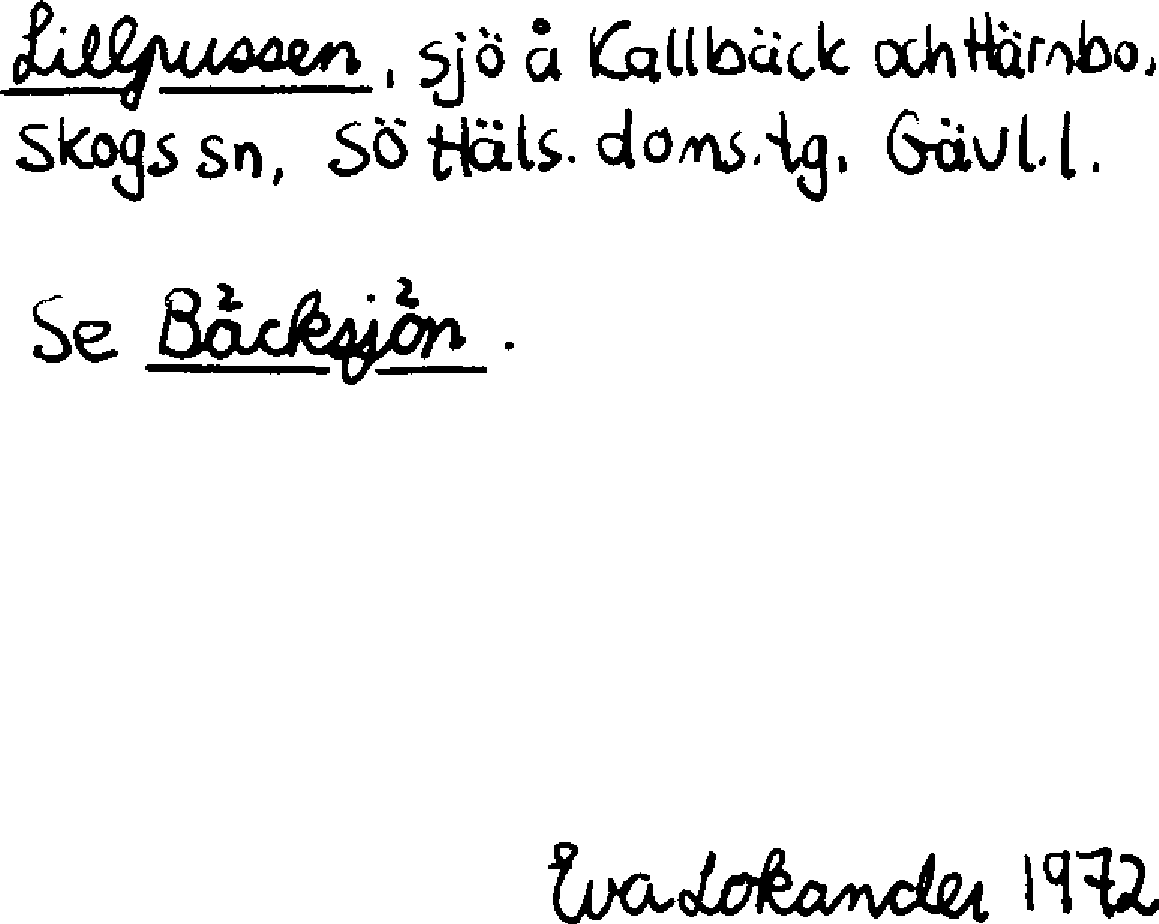 Lillpussen, sjö å Kallbäck och Härnbo,
Skogs sn, Sö Häls. doms.tg, Gävl.l.
Se Bäcksjön.
Eva Lokander 1972